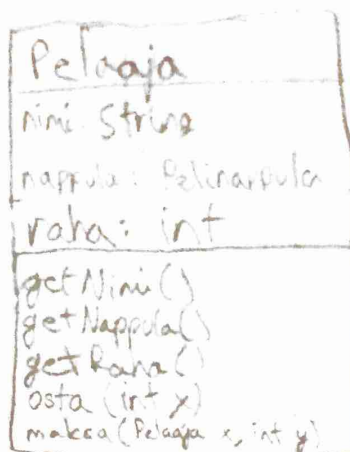 Pelaaja
nimi: String
nappula: Pelinappula
raha: int
getNimi()
getNappula()
getRaha()
osta (int x)
maksa(Pelaaja x, int y)